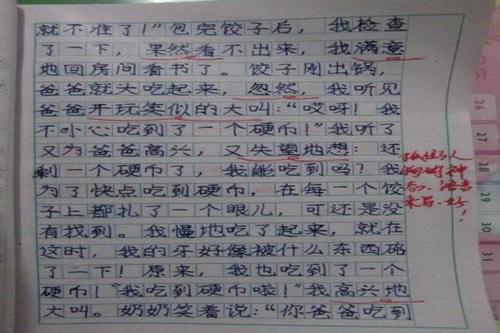 就不准了！”包完饺子后，我检查
了一下，果然看不出来，我满意
地回房间看书了。饺子刚出锅，
爸爸就大吃起来，忽然，我听见
爸爸开玩笑似的大叫：“哎呀！我
不小心吃到了一个硬币！”我听了
又为爸爸高兴，又失望地想：还
剩一个硬币了，我能吃到吗？我
为了快点吃到硬币，在每一个饺
子上都扎了一个眼儿，可还是没
有找到。我慢地吃了起来，就在
这时，我的牙好像被什么东西硌
了一下！原来，我也吃到了一个
硬币！“我吃到硬币啦！”我高兴地
大叫。奶奶笑着说：“你爸爸吃到
抓住了人
物的神
态、语言
来写，好！
26
28
29
30
31